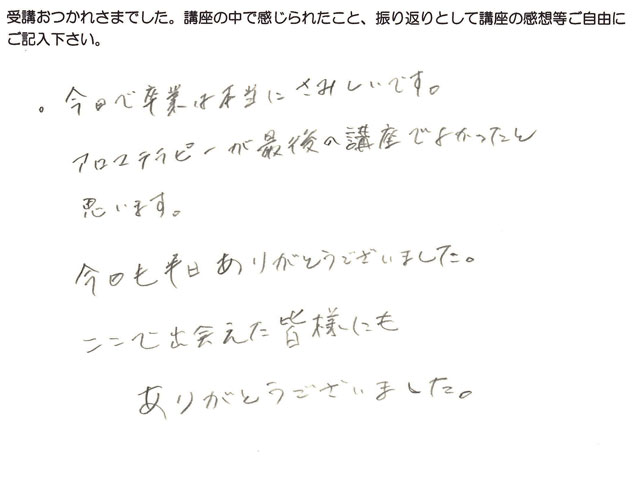 受講おつかれさまでした。講座の中で感じられたこと、振り返りとして講座の感想等ご自由に
ご記入下さい。
。今日で卒業は本当にさみしいです。
アロマテラピーが最後の講座でよかったと
思います。
今日も半日ありがとうございました。
ここで出会えた皆様にも
ありがとうございました。